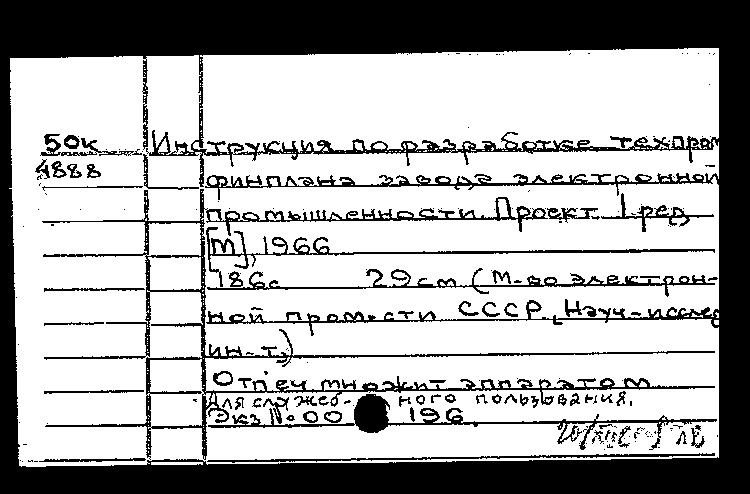 50к Инструкция по разработке техпром
4888 финплана завода электронной
промышленности. Проект 1 ред.
[М], 1966
186с 29см (М-во электрон-
ной пром-сти СССР. Науч-исслед
ин-т.)
Отпеч. множит аппаратом
Для служеб- ного пользования.
Экз № 00 196.